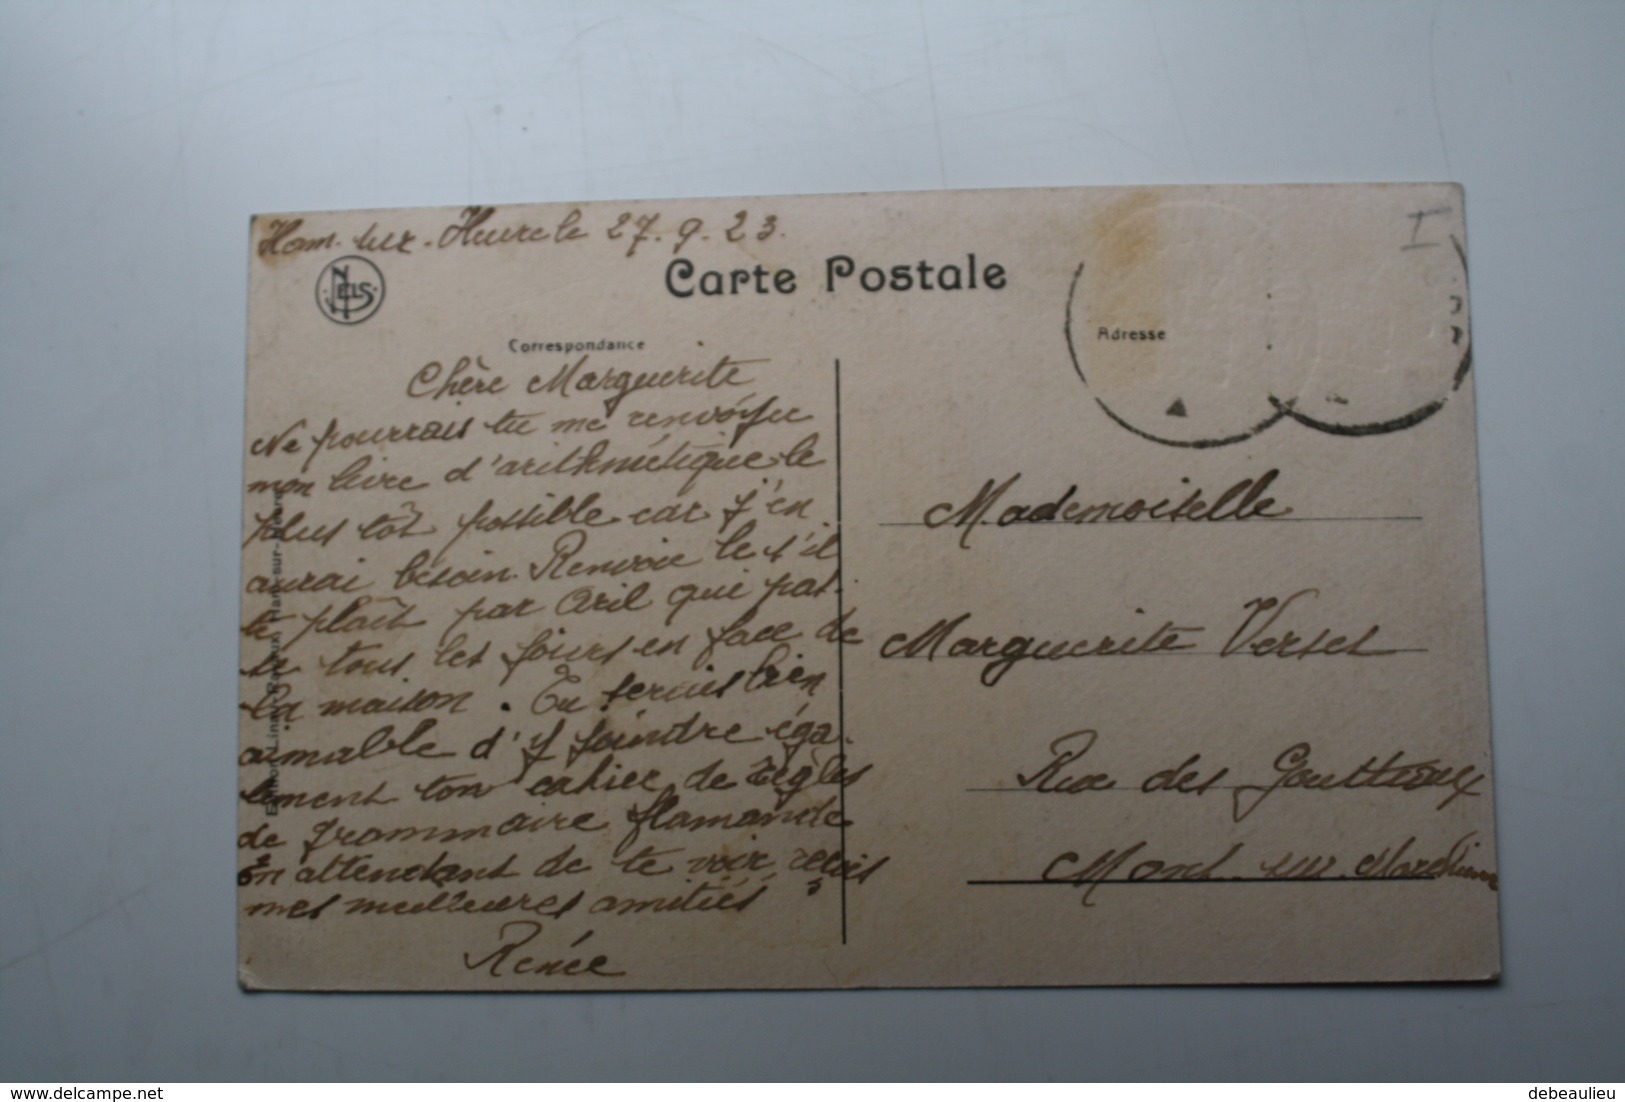 Ham-sur-Heure le 27.9.23.
NELS
Carte Postale
Correspondance
Adresse
I
Chère Marguerite
Ne pourrais tu me renvoyer
mon livre d'arithmétique le
plus tôt possible car j'en
aurai besoin. Renvoie le s'il
te plaît par Aril qui pas-
se tous les jours en face de
la maison. Tu serais bien
aimable d'y joindre éga-
lement ton cahier de règles
de grammaire flamande
En attendant de te voir reçois
mes meilleures amitiés
Renée
Mademoiselle
Marguerite Verset
Rue des Goutteaux
Mont-sur-Marchienne
Ham-sur-Heure
delcampe.net
debeaulieu